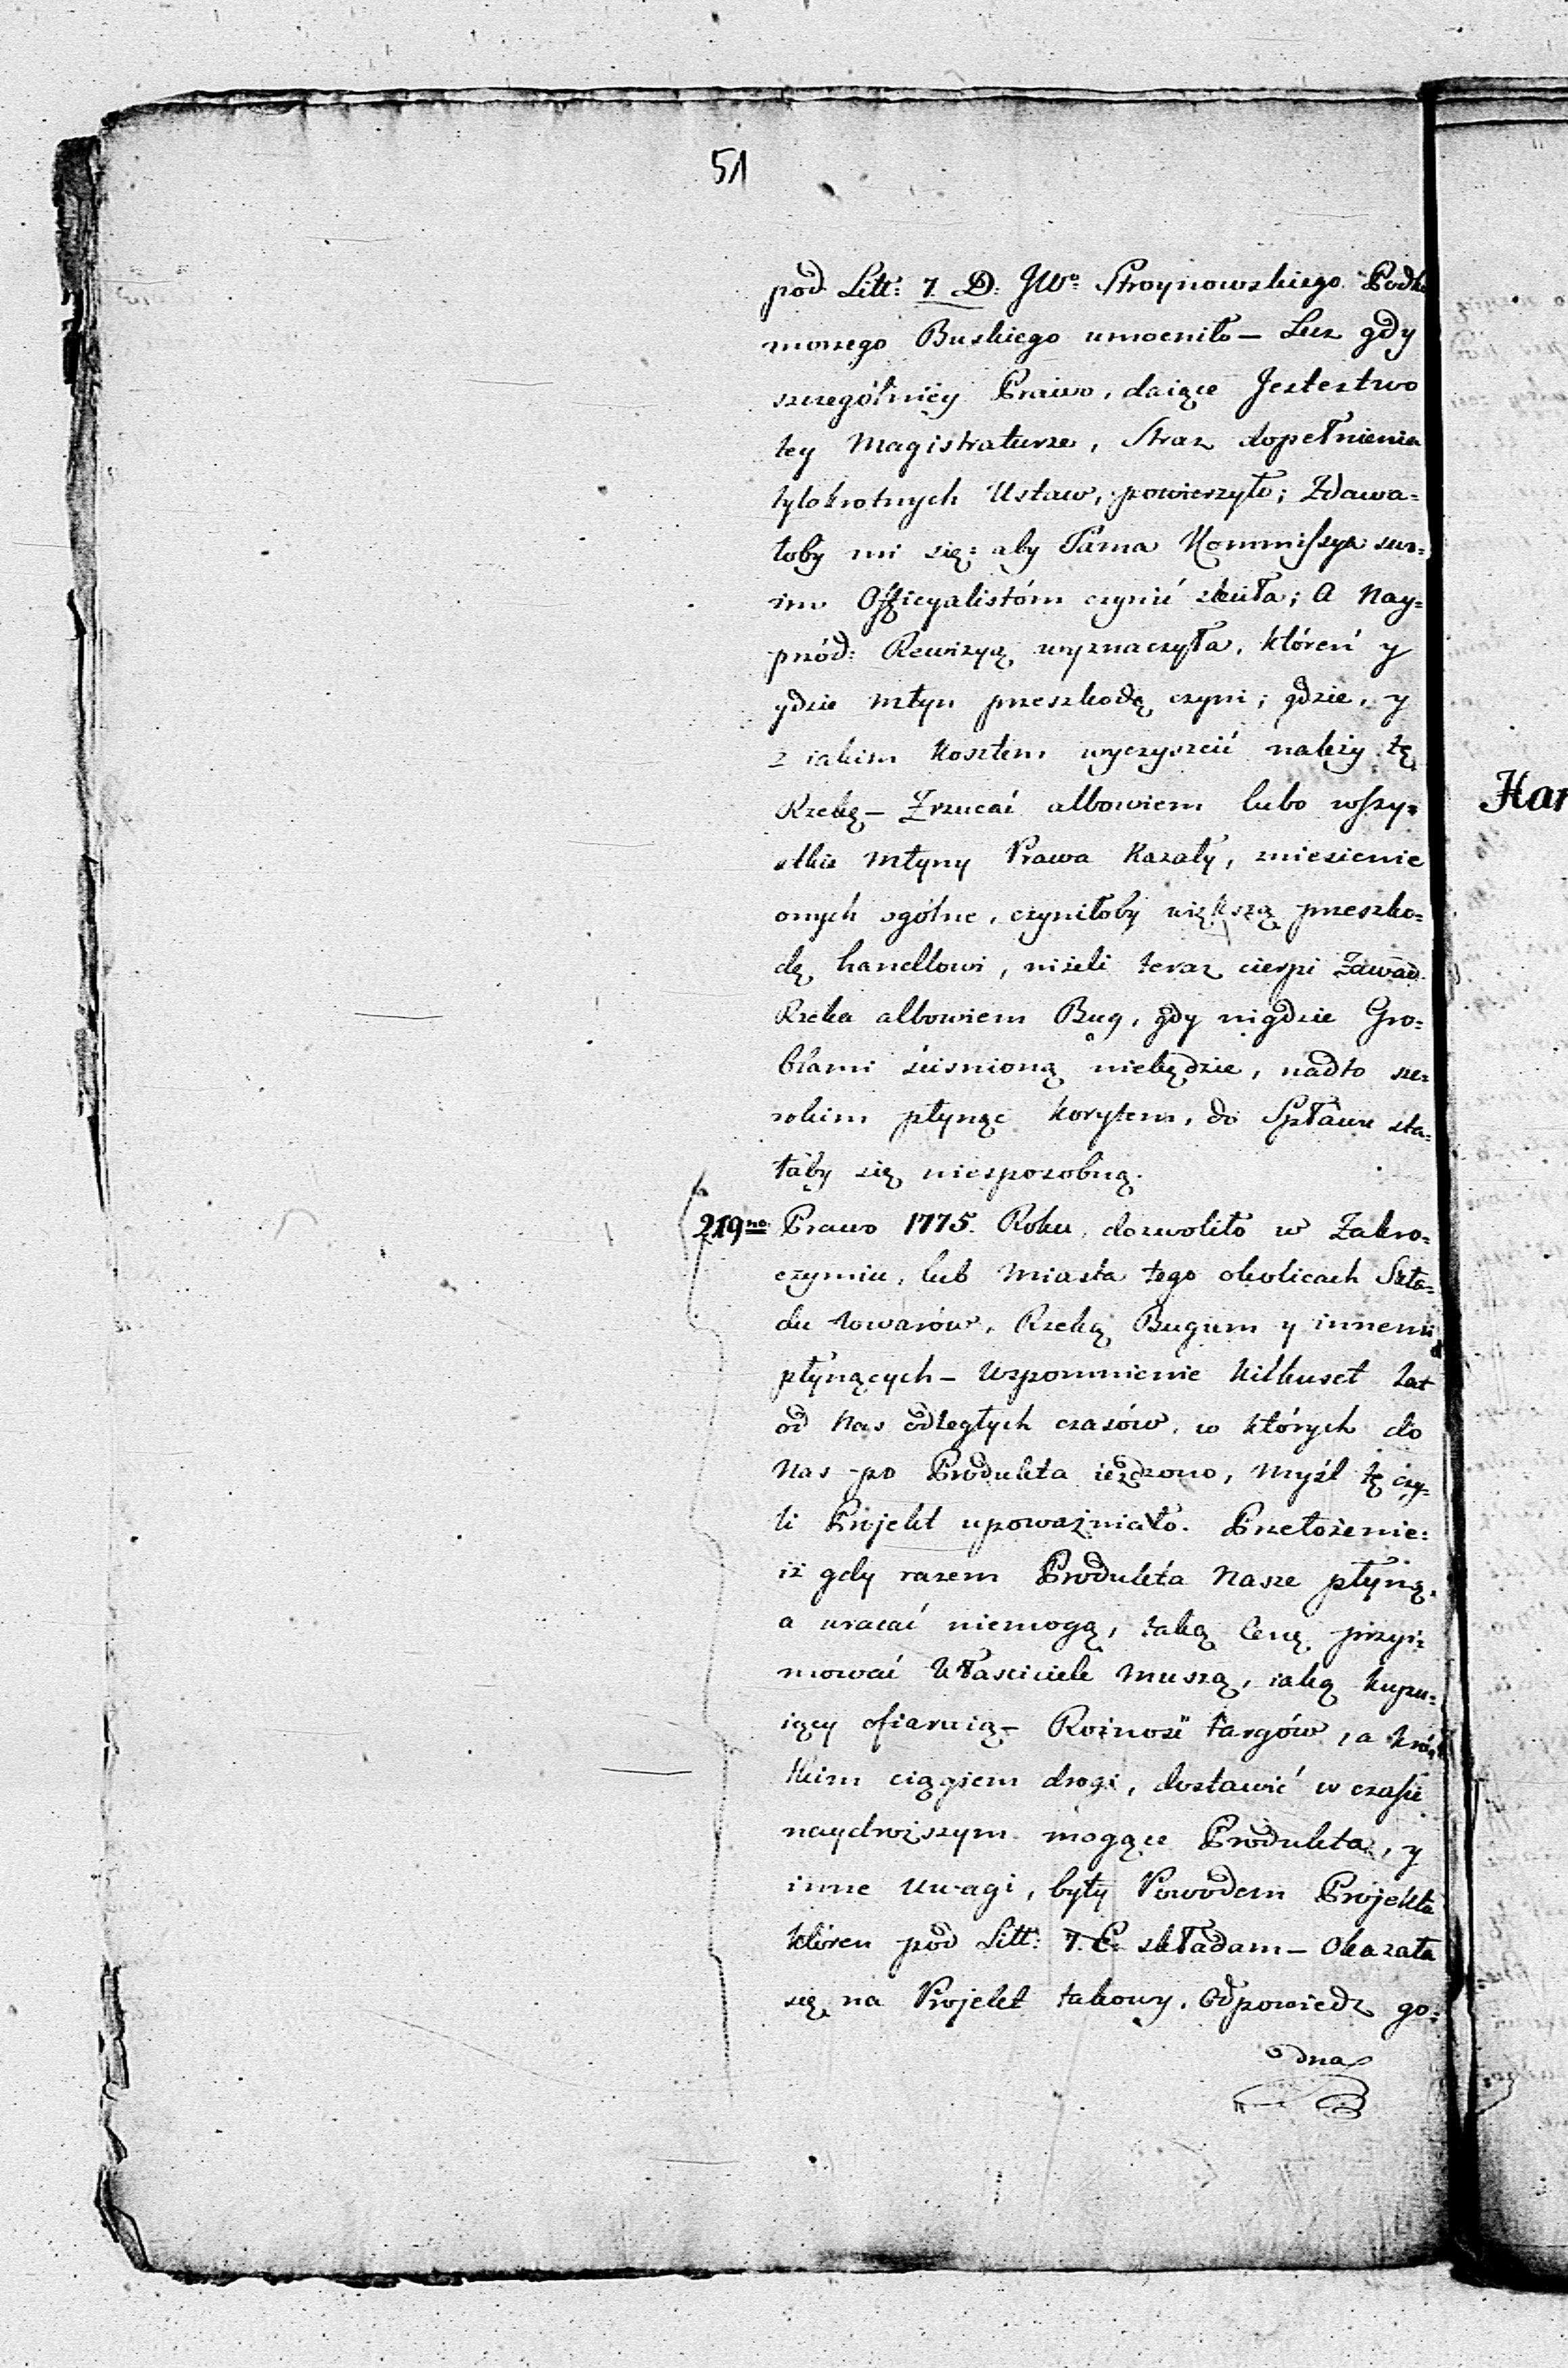 51
pod Litt: 7. D: JWo Stroynowskiego Podko
morzego Buskiego umocniło – Lecz gdy
szczególniéy Prawo, daiące Jestestwo
tey Magistraturze, Straz dopełnienia
tylokrotnych Ustaw, powierzyło; Zdawa=
łoby mi się: aby Tama Kommissya swo=
im Officyalistóm czynić zleciła; A Nay=
przód: Rewizyą wyznaczyła, któreń y
gdzie Młyn przeszkodę czyni; gdzie, y
z iakim Kosztem wyczyszcić należy tę
Rzekę – Zrzucać albowiem lubo wszy=
stkie Młyny Prawa Kazały, zniesienie
onych ogólne, czyniłoby większą przeszko=
dę handlowi, niżeli teraz cierpi Zawad.
Rzeka albowiem Bug, gdy nigdzie Gro=
blami ściśnioną niebędzie, nadto sze=
rokim płynąc korytem, do Spławu sta=
łaby się niesposobną.
219no Prawo 1775. Roku, dozwoliło w Zakro=
czymiu, lub Miasta tego okolicach Skła=
du towarów, Rzeką Bugiem y innemi
płynących – Wspomnienie Kilkuset Lat
od Nas odległych czasów, w których do
Nas po Produkta ieżdzono, Myśl tę czy=
li Projekt upoważniało. Przełożenie:
iż gdy razem Produkta Nasze płyną,
a wracać niemogą, taką Cenę przyi=
mować Właściciele Muszą, iaką kupu=
iący ofiaruią – Rożność targów, a krót
kim ciągiem drogi, dostawić w czasie
naydroższym mogące Produkta, y
inne Uwagi, były Powodem Projekta
któren pod Litt: 7. E: składam – Okazała
się na Projekt takowy, Odpowiedz go=
dna
Har